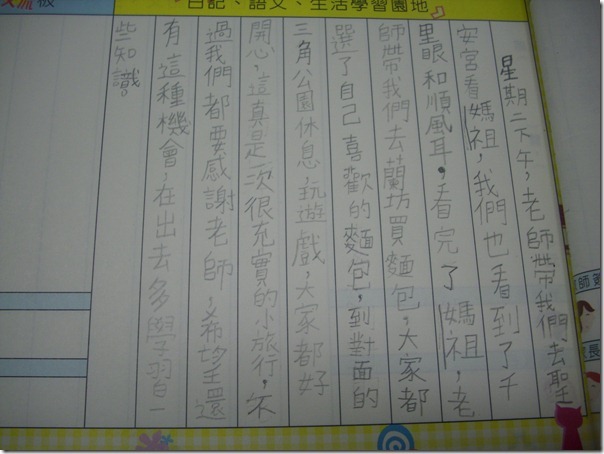 流板
日記、語文、生活學習園地
星期二下午,老師帶我們去聖
安宮看媽祖,我們也看到了千
里眼和順風耳。看完了媽祖,老
師帶我們去蘭坊買麵包,大家都
選了自己喜歡的麵包,到對面的
三角公園休息,玩遊戲,大家都好
開心,這真是一次很充實的小旅行,不
過我們都要感謝老師,希望還
有這種機會,在出去多學習一
些知識。